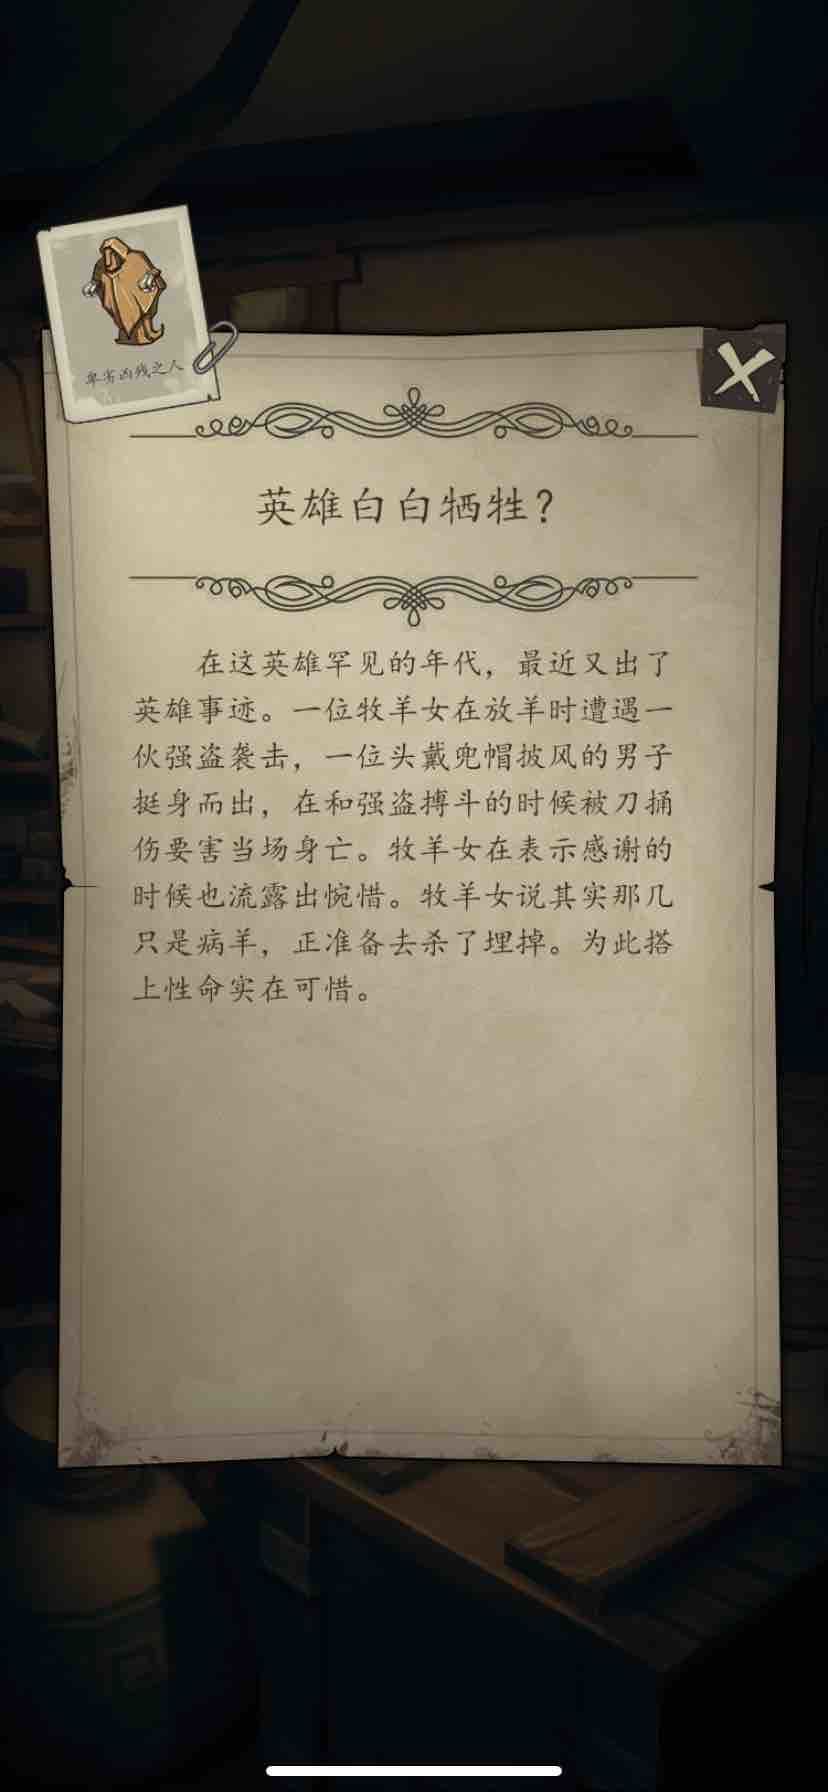 卑劣凶残之人
英雄白白牺牲？
在这英雄罕见的年代，最近又出了
英雄事迹。一位牧羊女在放羊时遭遇一
伙强盗袭击，一位头戴兜帽披风的男子
挺身而出，在和强盗搏斗的时候被刀捅
伤要害当场身亡。牧羊女在表示感谢的
时候也流露出惋惜。牧羊女说其实那几
只是病羊，正准备去杀了埋掉。为此搭
上性命实在可惜。